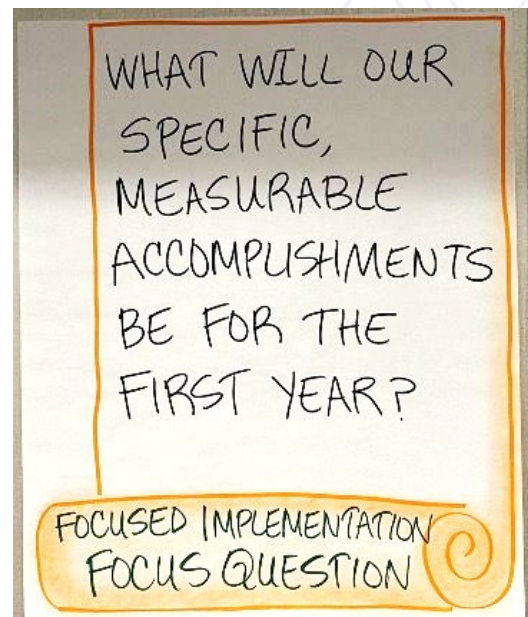 WHAT WILL OUR
SPECIFIC,
MEASURABLE
ACCOMPLISHMENTS
BE FOR THE
FIRST YEAR?
FOCUSED IMPLEMENTATION
FOCUS QUESTION